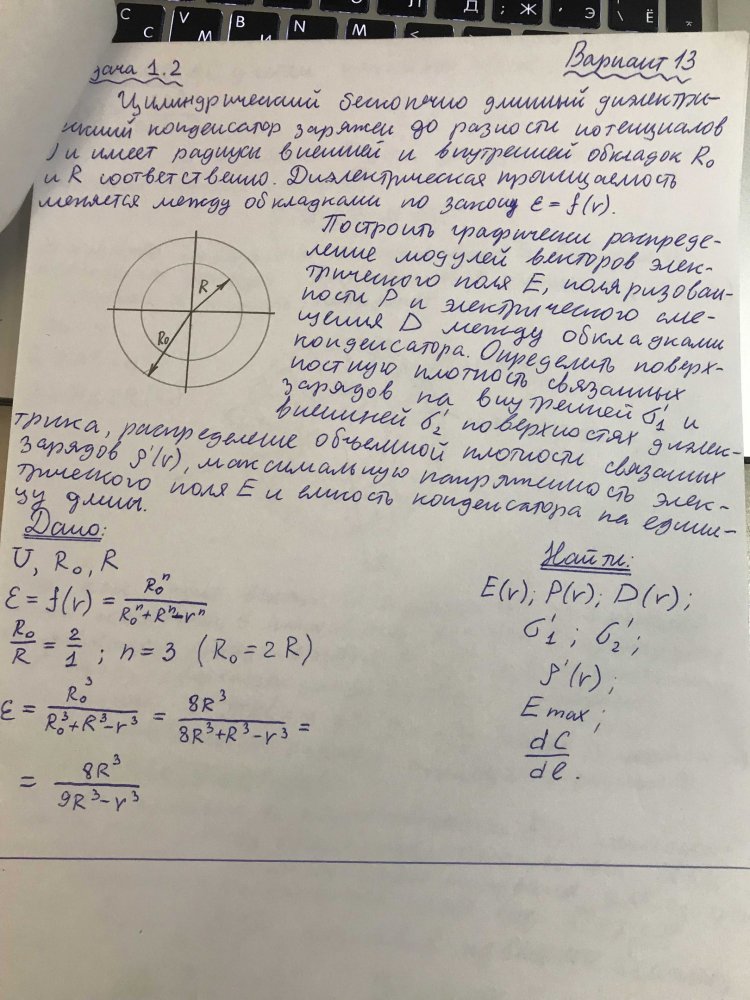 С С V М В И N М < Л Д ; Ж , Э \ Ё
дача 1.2 Вариант 13
Цилиндрический бесконечно длинный диэлектри-
ческий конденсатор заряжен до разности потенциалов
и имеет радиусы внешней и внутренней обкладок R₀
и R соответственно. Диэлектрическая проницаемость
меняется между обкладками по закону ε = f(r).
Построить графически распреде-
ление модулей векторов элек-
трического поля E, поляризован-
ности P и электрического сме-
щения D между обкладками
конденсатора. Определить поверх-
ностную плотность связанных
зарядов на внутренней σ₁' и
внешней σ₂' поверхностях диэлек-
трика, распределение объемной плотности связанных
зарядов ρ'(r), максимальную напряженность элек-
трического поля E и емкость конденсатора на едини-
цу длины.
R
R₀
Дано:
U, R₀, R
ε = f(r) = R₀ⁿ / (R₀ⁿ + Rⁿ - rⁿ)
R₀/R = 2/1 ; n = 3 (R₀ = 2R)
ε = R₀³ / (R₀³ + R³ - r³) = 8R³ / (8R³ + R³ - r³) =
= 8R³ / (9R³ - r³)
Найти:
E(r); P(r); D(r);
σ₁' ; σ₂' ;
ρ'(r);
E max;
dC/dl.